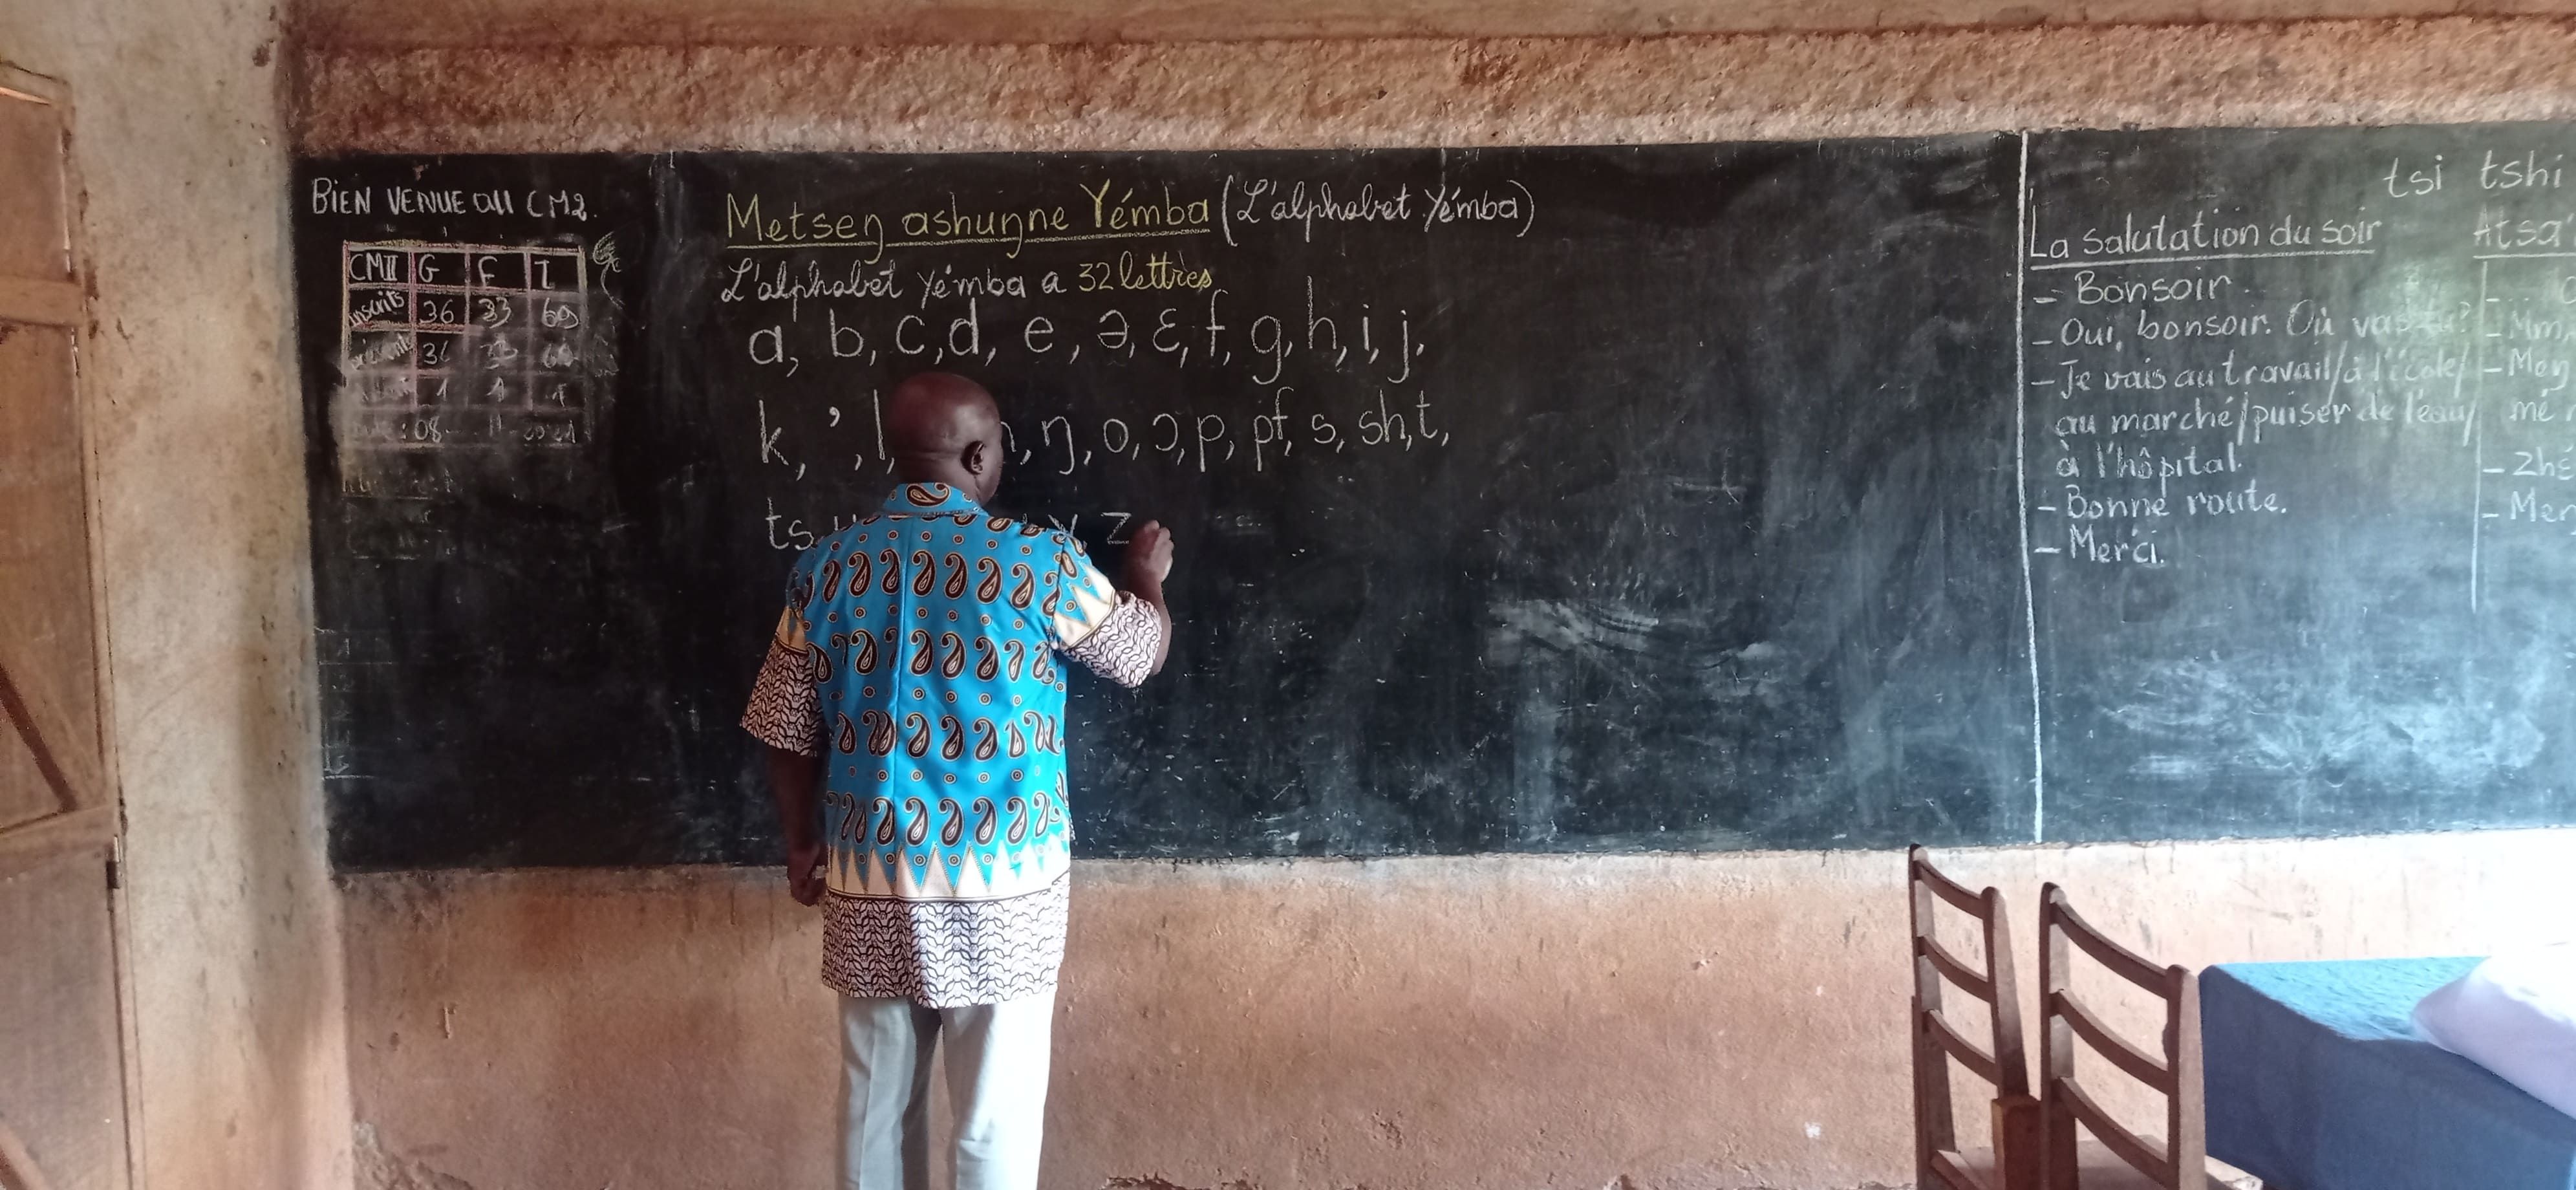 BIEN VENUE au CM2.
CMII G F T
inscrits 36 33 69
Metseŋ ashuŋne Yémba (L'alphabet Yémba)
L'alphabet yémba a 32 lettres
a, b, c, d, e, ə, ɛ, f, g, h, i, j,
k, ', l, ŋ, o, ɔ, p, pf, s, sh, t,
ts, z
tsi tshi
La salutation du soir
- Bonsoir.
- Oui, bonsoir. Où vas-tu?
- Je vais au travail/à l'école/
au marché/puiser de l'eau/
à l'hôpital.
- Bonne route.
- Merci.
Atsa
- Mm,
- Meŋ
mé
- Zhé
- Mer